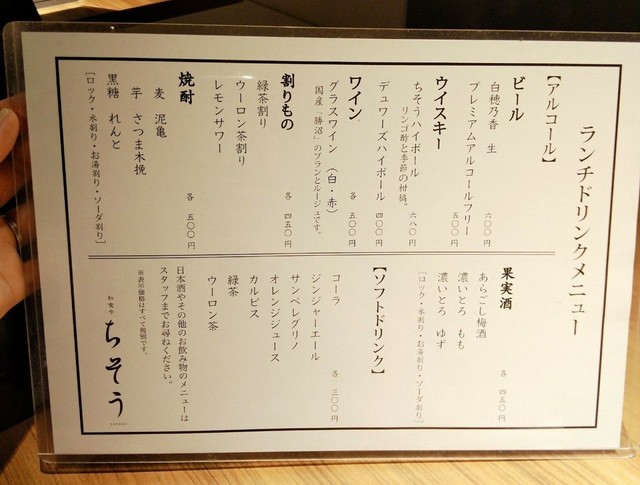 ランチドリンクメニュー
【アルコール】
ビール
白穂乃香　生　六〇〇円
プレミアムアルコールフリー　五〇〇円
ウイスキー
ちそうハイボール　六八〇円
リンゴ酢と季節の柑橘。
デュワーズハイボール　四〇〇円
ワイン
グラスワイン　（白・赤）　各　五〇〇円
国産「勝沼」のブランとルージュです。
割りもの　各　四五〇円
緑茶割り
ウーロン茶割り
レモンサワー
焼酎　各　五〇〇円
麦　泥亀
芋　さつま木挽
黒糖　れんと
［ロック・水割り・お湯割り・ソーダ割り］
果実酒　各　四五〇円
あらごし梅酒
濃いとろ　もも
濃いとろ　ゆず
［ロック・水割り・お湯割り・ソーダ割り］
【ソフトドリンク】
コーラ　各　三〇〇円
ジンジャーエール
サンペレグリノ
オレンジジュース
カルピス
緑茶
ウーロン茶
日本酒やその他のお飲み物のメニューは
スタッフまでお尋ねください。
※表示価格はすべて税別です。
ちそう